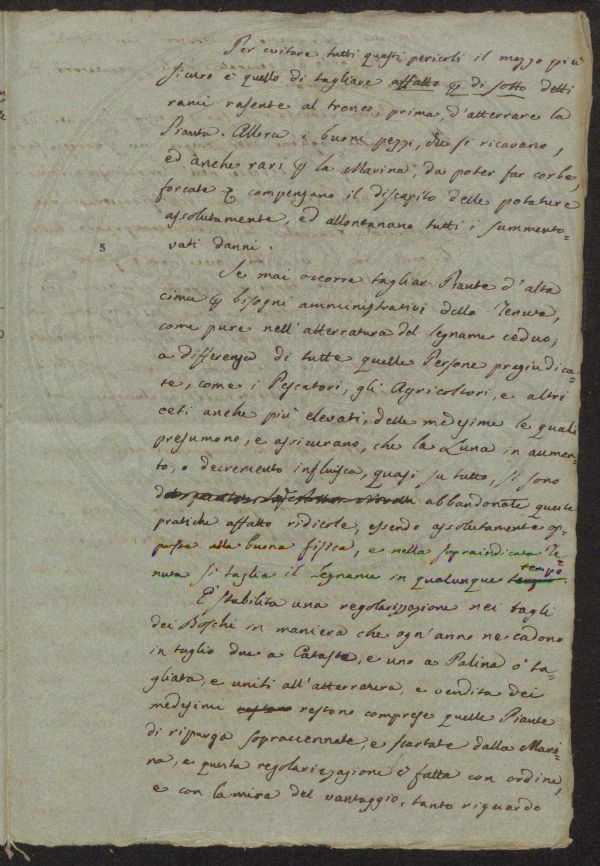 Per evitare tutti questi pericoli il mezzo più
sicuro è quello di tagliare affatto p di sotto detti
rami rasente al tronco, prima d'atterrare la
Pianta. Allora i buoni pezzi, che si ricavano,
ed anche rari p la Marina, da poter far corbe,
forcate & compensano il discapito delle potature
assolutamente, ed allontanano tutti i summento=
vati danni.
5
Se mai occorre tagliar Piante d'alta
cima p bisogni amministrativi della Tenuta,
come pure nell'atterratura del legname ceduo;
a differenza di tutte quelle Persone pregiudica=
te, come i Pescatori, gli Agricoltori, e altri
ceti anche più elevati, delle medesime le quali
presumono, e assicurano, che la Luna in aumen=
to, o decremento influisca, quasi su tutto, si sono
abbandonate queste
pratiche affatto ridicole, essendo assolutamente op=
poste alla buona fisica, e nella sopraindicata Te=
nuta si taglia il Legname in qualunque tempo.
E' stabilita una regolarizzazione nei tagli
dei Boschi in maniera che ogn'anno ne cadono
in taglio due a Cataste, e uno a Palina o ta=
gliata, e uniti all'atterratura, e vendita dei
medesimi restano restono comprese quelle Piante
di ripurga sopraccennate, e scartate dalla Mari=
na, e questa regolarizzazione è fatta con ordine,
e con la mira del vantaggio, tanto riguardo